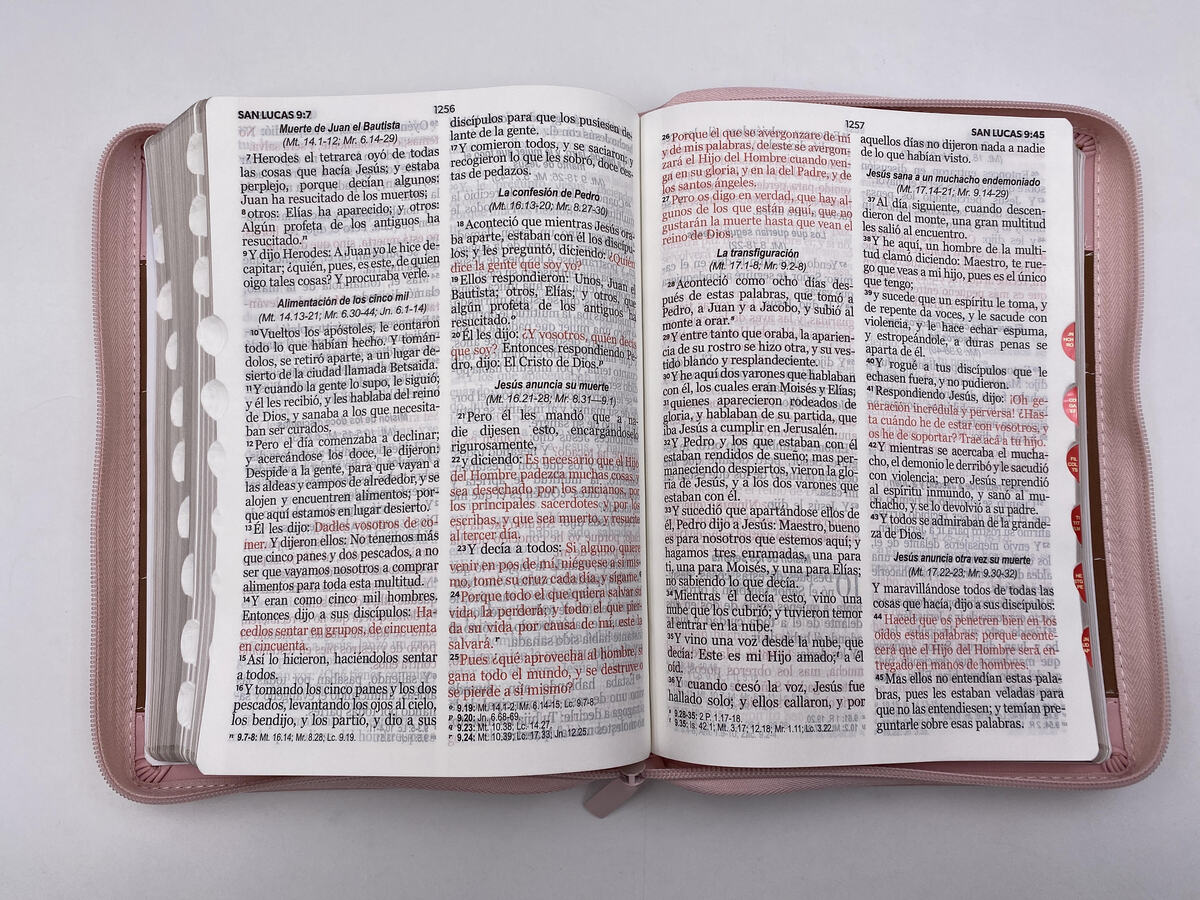 SAN LUCAS 9:7
1256
Muerte de Juan el Bautista
(Mt. 14.1-12; Mr. 6.14-29)
7 Herodes el tetrarca oyó de todas
las cosas que hacía Jesús; y estaba
perplejo, porque decían algunos:
Juan ha resucitado de los muertos;
8 otros: Elías ha aparecido; y otros:
Algún profeta de los antiguos ha
resucitado.
9 Y dijo Herodes: A Juan yo le hice de-
capitar; ¿quién, pues, es este, de quien
oigo tales cosas? Y procuraba verle.
Alimentación de los cinco mil
(Mt. 14.13-21; Mr. 6.30-44; Jn. 6.1-14)
10 Vueltos los apóstoles, le contaron
todo lo que habían hecho. Y tomán-
dolos, se retiró aparte, a un lugar de-
sierto de la ciudad llamada Betsaida.
11 Y cuando la gente lo supo, le siguió;
y él les recibió, y les hablaba del reino
de Dios, y sanaba a los que necesita-
ban ser curados.
12 Pero el día comenzaba a declinar;
y acercándose los doce, le dijeron:
Despide a la gente, para que vayan a
las aldeas y campos de alrededor, y se
alojen y encuentren alimentos; por-
que aquí estamos en lugar desierto.
13 Él les dijo: Dadles vosotros de co-
mer. Y dijeron ellos: No tenemos más
que cinco panes y dos pescados, a no
ser que vayamos nosotros a comprar
alimentos para toda esta multitud.
14 Y eran como cinco mil hombres.
Entonces dijo a sus discípulos: Ha-
cedlos sentar en grupos, de cincuenta
en cincuenta.
15 Así lo hicieron, haciéndolos sentar
a todos.
16 Y tomando los cinco panes y los dos
pescados, levantando los ojos al cielo,
los bendijo, y los partió, y dio a sus
9.7-8: Mt. 16.14; Mr. 8.28; Lc. 9.19.
discípulos para que los pusiesen de-
lante de la gente.
17 Y comieron todos, y se saciaron; y
recogieron lo que les sobró, doce ces-
tas de pedazos.
La confesión de Pedro
(Mt. 16.13-20; Mr. 8.27-30)
18 Aconteció que mientras Jesús ora-
ba aparte, estaban con él los discípu-
los; y les preguntó, diciendo: ¿Quién
dice la gente que soy yo?
19 Ellos respondieron: Unos, Juan el
Bautista; otros, Elías; y otros, que
algún profeta de los antiguos ha
resucitado.
20 Él les dijo: ¿Y vosotros, quién decís
que soy? Entonces respondiendo Pe-
dro, dijo: El Cristo de Dios.
Jesús anuncia su muerte
(Mt. 16.21-28; Mr. 8.31—9.1)
21 Pero él les mandó que a na-
die dijesen esto, encargándoselo
rigurosamente,
22 y diciendo: Es necesario que el Hijo
del Hombre padezca muchas cosas, y
sea desechado por los ancianos, por
los principales sacerdotes y por los
escribas, y que sea muerto, y resucite
al tercer día.
23 Y decía a todos: Si alguno quiere
venir en pos de mí, niéguese a sí mis-
mo, tome su cruz cada día, y sígame.
24 Porque todo el que quiera salvar su
vida, la perderá; y todo el que pier-
da su vida por causa de mí, este la
salvará.
25 Pues ¿qué aprovecha al hombre, si
gana todo el mundo, y se destruye o
se pierde a sí mismo?
9.19: Mt. 14.1-2; Mr. 6.14-15; Lc. 9.7-8.
9.20: Jn. 6.68-69.
9.23: Mt. 10.38; Lc. 14.27.
9.24: Mt. 10.39; Lc. 17.33; Jn. 12.25.
1257
SAN LUCAS 9:45
26 Porque el que se avergonzare de mí
y de mis palabras, de este se avergon-
zará el Hijo del Hombre cuando ven-
ga en su gloria, y en la del Padre, y de
los santos ángeles.
27 Pero os digo en verdad, que hay al-
gunos de los que están aquí, que no
gustarán la muerte hasta que vean el
reino de Dios.
La transfiguración
(Mt. 17.1-8; Mr. 9.2-8)
28 Aconteció como ocho días des-
pués de estas palabras, que tomó a
Pedro, a Juan y a Jacobo, y subió al
monte a orar.
29 Y entre tanto que oraba, la aparien-
cia de su rostro se hizo otra, y su ves-
tido blanco y resplandeciente.
30 Y he aquí dos varones que hablaban
con él, los cuales eran Moisés y Elías;
31 quienes aparecieron rodeados de
gloria, y hablaban de su partida, que
iba Jesús a cumplir en Jerusalén.
32 Y Pedro y los que estaban con él
estaban rendidos de sueño; mas per-
maneciendo despiertos, vieron la glo-
ria de Jesús, y a los dos varones que
estaban con él.
33 Y sucedió que apartándose ellos de
él, Pedro dijo a Jesús: Maestro, bueno
es para nosotros que estemos aquí; y
hagamos tres enramadas, una para
ti, una para Moisés, y una para Elías;
no sabiendo lo que decía.
34 Mientras él decía esto, vino una
nube que los cubrió; y tuvieron temor
al entrar en la nube.
35 Y vino una voz desde la nube, que
decía: Este es mi Hijo amado; a él
oíd.
36 Y cuando cesó la voz, Jesús fue
hallado solo; y ellos callaron, y por
9.28-35: 2 P. 1.17-18.
9.35: Is. 42.1; Mt. 3.17; 12.18; Mr. 1.11; Lc. 3.22.
aquellos días no dijeron nada a nadie
de lo que habían visto.
Jesús sana a un muchacho endemoniado
(Mt. 17.14-21; Mr. 9.14-29)
37 Al día siguiente, cuando descen-
dieron del monte, una gran multitud
les salió al encuentro.
38 Y he aquí, un hombre de la multi-
tud clamó diciendo: Maestro, te rue-
go que veas a mi hijo, pues es el único
que tengo;
39 y sucede que un espíritu le toma, y
de repente da voces, y le sacude con
violencia, y le hace echar espuma,
y estropeándole, a duras penas se
aparta de él.
40 Y rogué a tus discípulos que le
echasen fuera, y no pudieron.
41 Respondiendo Jesús, dijo: ¡Oh ge-
neración incrédula y perversa! ¿Has-
ta cuándo he de estar con vosotros, y
os he de soportar? Trae acá a tu hijo.
42 Y mientras se acercaba el mucha-
cho, el demonio le derribó y le sacudió
con violencia; pero Jesús reprendió
al espíritu inmundo, y sanó al mu-
chacho, y se lo devolvió a su padre.
43 Y todos se admiraban de la grande-
za de Dios.
Jesús anuncia otra vez su muerte
(Mt. 17.22-23; Mr. 9.30-32)
Y maravillándose todos de todas las
cosas que hacía, dijo a sus discípulos:
44 Haced que os penetren bien en los
oídos estas palabras; porque aconte-
cerá que el Hijo del Hombre será en-
tregado en manos de hombres.
45 Mas ellos no entendían estas pala-
bras, pues les estaban veladas para
que no las entendiesen; y temían pre-
guntarle sobre esas palabras.